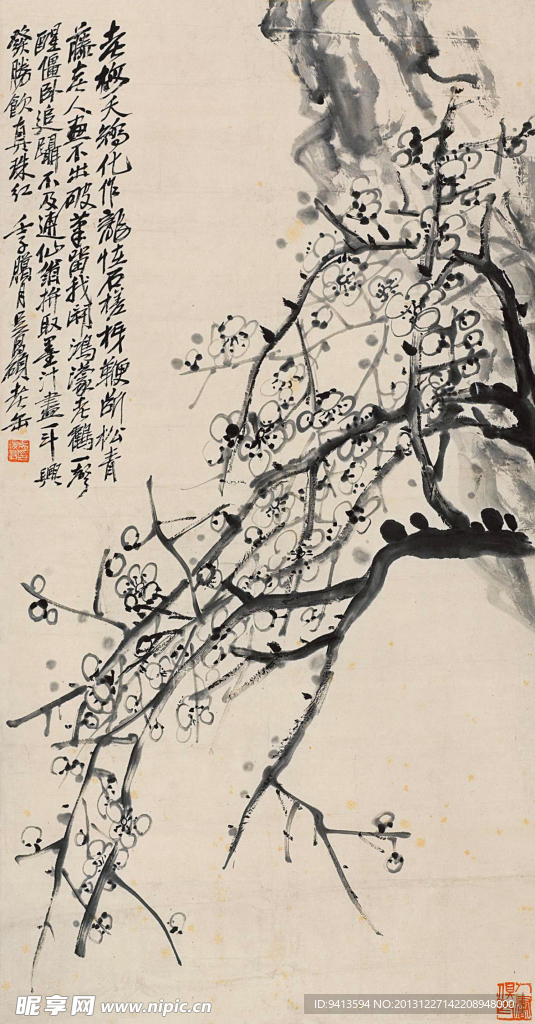 老梅夭矯化作龍怪石槎枒鞭斷松青
藤老人畫不出破筆留我開鴻濛老鶴一聲
醒僵臥追躡不及逋仙翁拚取墨汁盡一斗興
發勝飲真珠紅 壬子臘月吳昌碩老缶
昵享网 www.nipic.cn
ID:9413594 NO:20131227142208948000